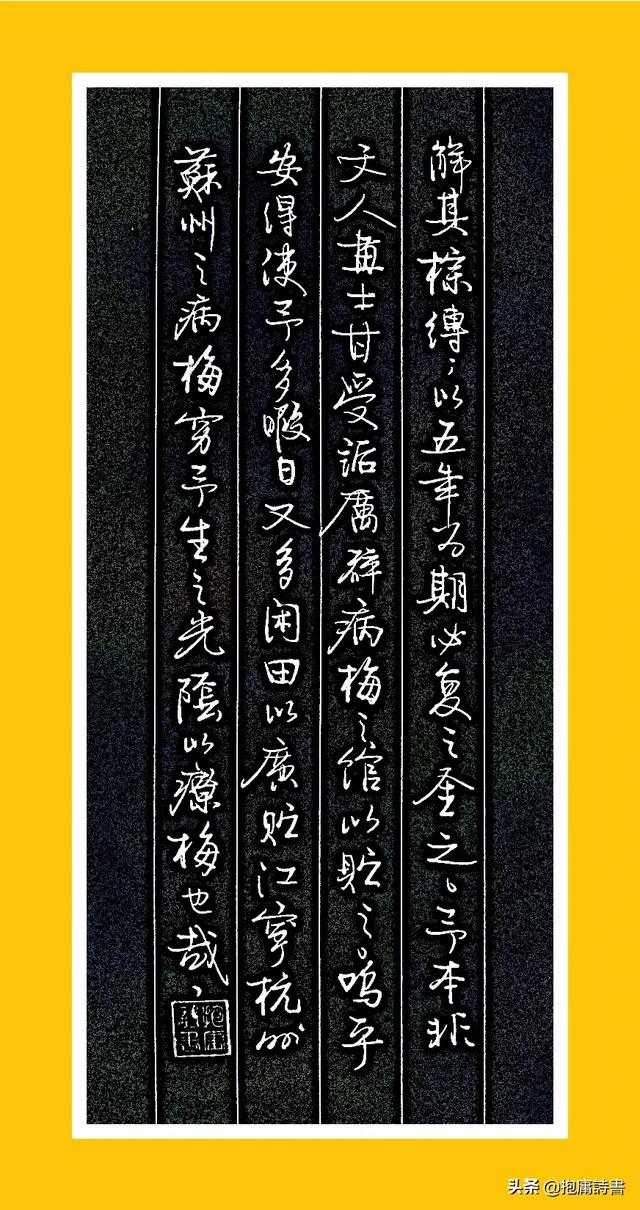 解其棕縛；以五年为期必复之全之。予本非
文人畫士甘受詬厲辟病梅之馆以貯之。嗚乎
安得使予多暇日又多闲田以廣貯江寧杭州
蘇州之病梅穷予生之光陰以療梅也哉、
头条 @抱庸詩書